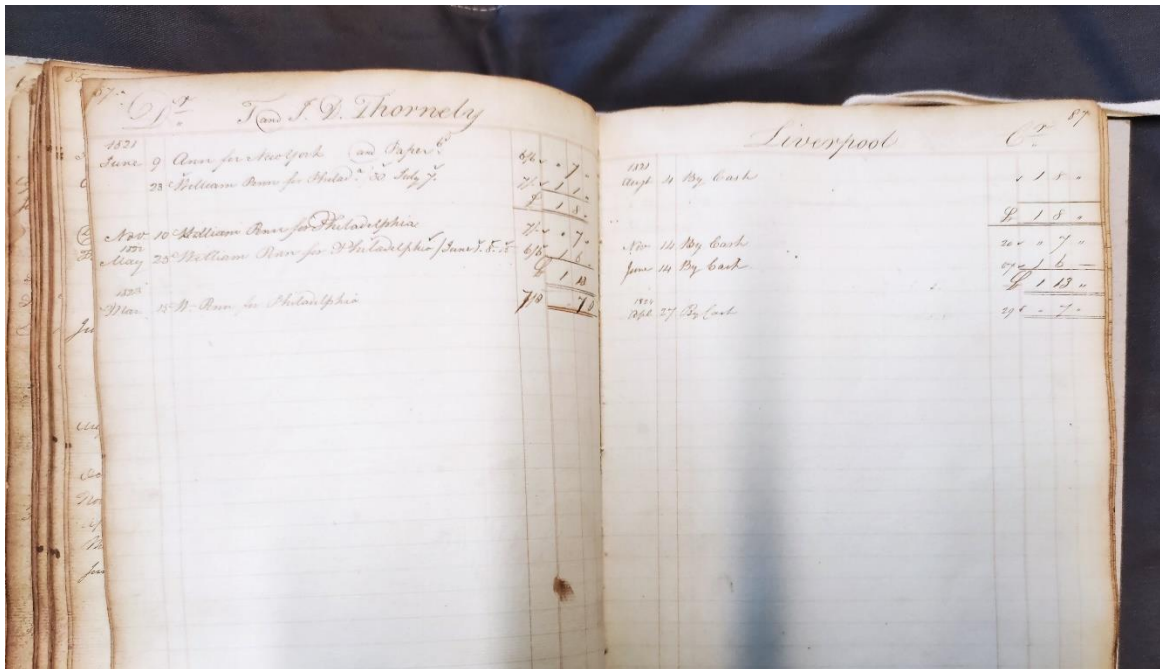 87
Dr. T and J. D. Thornely
1821
June 9 Ann for New York and Paper 6/6 " 7 "
23 William Penn for Philada. July 7. 7/ 1 1 "
£ 1 8 "
Nov 10 William Penn for Philadelphia 7/ " 7 "
1822
May 25 William Penn for Philadelphia / June 6/6 1 6
£ 1 13
Mar. 15 Wm Penn for Philadelphia 7/ 7
Liverpool Cr. 87
1821
Augt 4 By Cash 1 8 "
£ 1 8 "
Nov 14 By Cash " 7 "
June 14 By Cash 1 6 —
£ 1 13 "
27 By Cash 29 " 7 "